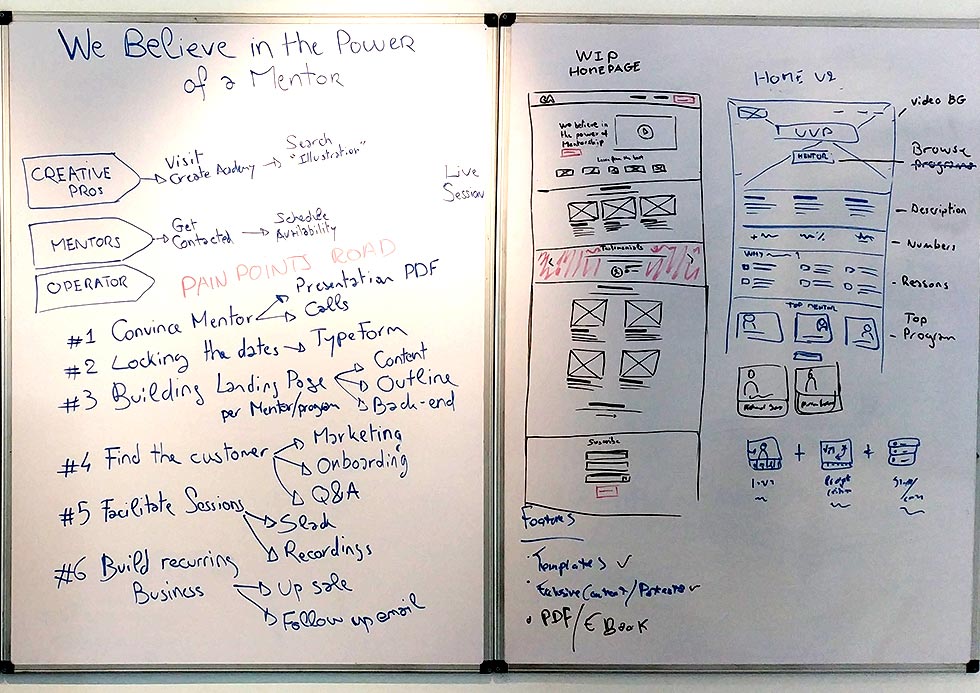 We Believe in the Power
of a Mentor
CREATIVE
PROS
Visit
Create Academy
Search
"Illustration"
Live
Session
MENTORS
Get
Contacted
Schedule
Availability
OPERATOR
PAIN POINTS ROAD
#1 Convince Mentor
Presentation PDF
Calls
#2 Locking the dates
TypeForm
#3 Building Landing Page
per Mentor/program
Content
Outline
Back-end
#4 Find the customer
Marketing
Onboarding
Q&A
#5 Facilitate Sessions
Slack
Recordings
#6 Build recurring
Business
Up sale
Follow up email
WIP
HOMEPAGE
CA
We believe in
the power of
Mentorship
Learn from the best
Testimonials
Suscribe
HOME V2
video BG
UVP
MENTOR
Browse
programs
Description
Numbers
WHY
Reasons
TOP MENTOR
Top
Program
+
+
Features
Templates ✓
Exclusive Content/
PDF/E Book